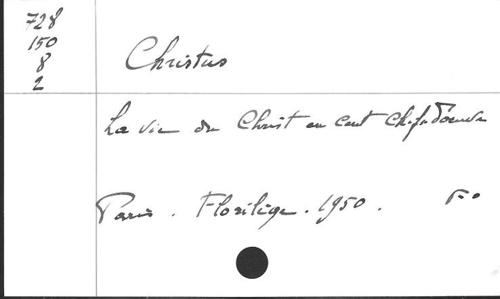 728
150
8
2
Christus
La vie du Christ en cent chefs d'oeuvre
Paris. Florilège. 1950. Fo